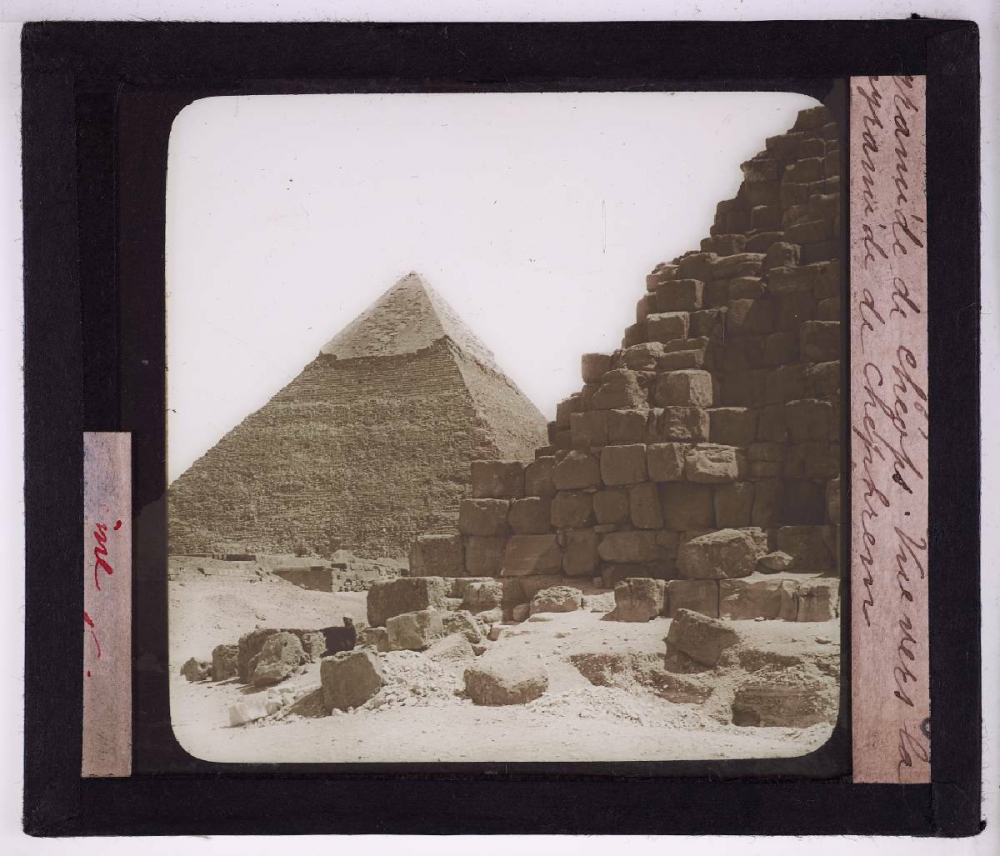 yramide de chéops. Vue vers la
yramide de Chephrenn